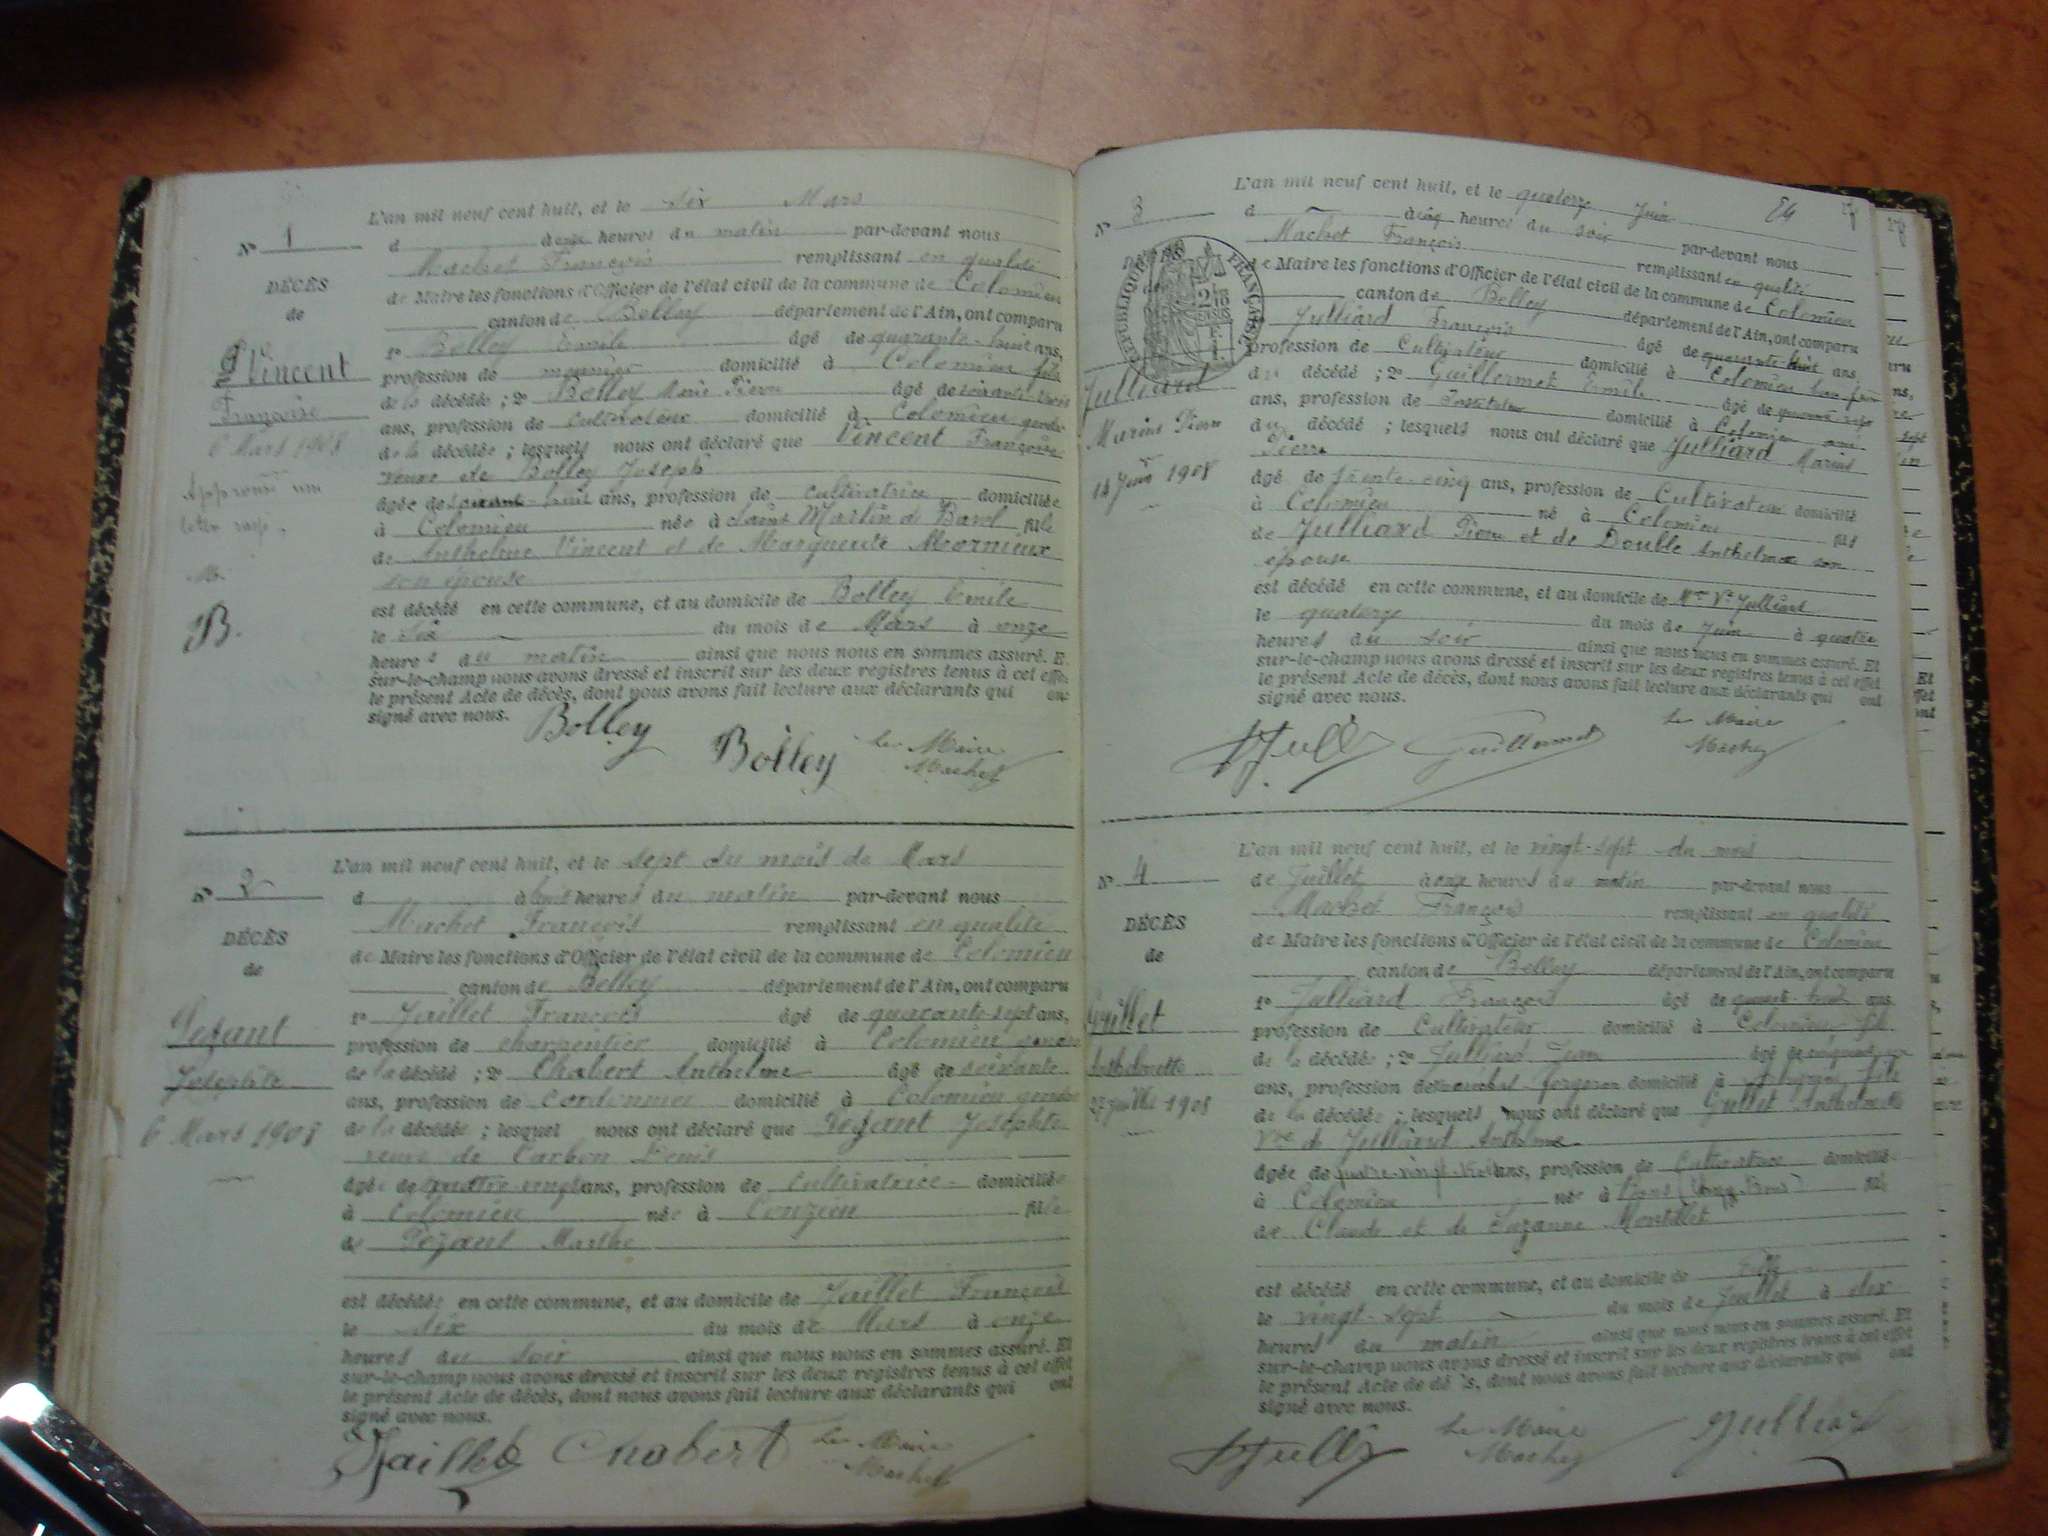 N° 1
DÉCÈS
de
Vincent
Françoise
6 Mars 1908
Approuvé un
B.
L'an mil neuf cent huit, et le six Mars
à onze heures du matin par-devant nous
Machet François remplissant en qualité
de Maire les fonctions d'Officier de l'état civil de la commune de Colomieu
canton de Belley département de l'Ain, ont comparu
1° Bolley Emile âgé de quarante-huit ans,
profession de meunier domicilié à Colomieu fils
de la décédée ; 2° Bolley Marie Pierre âgé de soixante-trois
ans, profession de cultivateur domicilié à Colomieu gendre
de la décédée ; lesquels nous ont déclaré que Vincent Françoise
veuve de Bolley Joseph
âgée de huit ans, profession de cultivatrice domiciliée
à Colomieu née à Saint Martin de Bavel fille
de Anthelme Vincent et de Marguerite Mornieux
son épouse
est décédé en cette commune, et au domicile de Bolley Emile
le six du mois de Mars à onze
heures du matin ainsi que nous nous en sommes assuré. Et
sur-le-champ nous avons dressé et inscrit sur les deux registres tenus à cet effet
le présent Acte de décès, dont nous avons fait lecture aux déclarants qui ont
signé avec nous.
Bolley Bolley le Maire
Machet
N° 2
DÉCÈS
de
Pezant
Josephte
6 Mars 1908
L'an mil neuf cent huit, et le sept du mois de Mars
à huit heures du matin par-devant nous
Machet François remplissant en qualité
de Maire les fonctions d'Officier de l'état civil de la commune de Colomieu
canton de Belley département de l'Ain, ont comparu
1° Jaillet François âgé de quarante-sept ans,
profession de charpentier domicilié à Colomieu gendre
de la décédé ; 2° Chabert Anthelme âgé de soixante
ans, profession de Cordonnier domicilié à Colomieu gendre
de la décédée ; lesquel nous ont déclaré que Pezant Josephte
veuve de Carbon Denis
âgée de quatre-vingt ans, profession de Cultivatrice domiciliée
à Colomieu née à Conzieu fille
de Pezant Marthe
est décédée en cette commune, et au domicile de Jaillet François
le six du mois de Mars à onze
heures du soir ainsi que nous nous en sommes assuré. Et
sur-le-champ nous avons dressé et inscrit sur les deux registres tenus à cet effet
le présent Acte de décès, dont nous avons fait lecture aux déclarants qui ont
signé avec nous.
Jaillet Chabert le Maire
Machet
N° 3
RÉPUBLIQUE FRANÇAISE
Julliard
Marius Pierre
14 Juin 1908
L'an mil neuf cent huit, et le quatorze Juin
à cinq heures du soir par-devant nous
Machet François remplissant en qualité
de Maire les fonctions d'Officier de l'état civil de la commune de Colomieu
canton de Belley département de l'Ain, ont comparu
Julliard François âgé de quarante-huit ans
profession de Cultivateur domicilié à Colomieu
du décédé ; 2° Guillermet Emile âgé de quarante-sept
ans, profession de Instituteur domicilié à Colomieu ami
du décédé ; lesquels nous ont déclaré que Julliard Marius
Pierre
âgé de trente-cinq ans, profession de Cultivateur domicilié
à Colomieu né à Colomieu fils
de Julliard Pierre et de Double Anthelmette son
épouse
est décédé en cette commune, et au domicile de Mme Ve Julliard
le quatorze du mois de Juin à quatre
heures du soir ainsi que nous nous en sommes assuré. Et
sur-le-champ nous avons dressé et inscrit sur les deux registres tenus à cet effet
le présent Acte de décès, dont nous avons fait lecture aux déclarants qui ont
signé avec nous.
Guillermet le Maire
Machet
N° 4
DÉCÈS
de
Guillet
Anthelmette
27 juillet 1908
L'an mil neuf cent huit, et le vingt-sept du mois
de Juillet à onze heures du matin par-devant nous
Machet François remplissant en qualité
de Maire les fonctions d'Officier de l'état civil de la commune de Colomieu
canton de Belley département de l'Ain, ont comparu
1° Julliard François âgé de quarante-huit ans
profession de Cultivateur domicilié à Colomieu fils
de la décédée ; 2° Julliard Jean âgé de cinquante
ans, profession de maréchal-forgeron domicilié à fils
de la décédée ; lesquels nous ont déclaré que Guillet Anthelmette
Vve de Julliard Anthelme
âgée de quatre-vingt-trois ans, profession de Cultivatrice domiciliée
à Colomieu née à fille
de Claude et de Suzanne Montillet
est décédé en cette commune, et au domicile de
le vingt-sept du mois de Juillet à dix
heures du matin ainsi que nous nous en sommes assuré. Et
sur-le-champ nous avons dressé et inscrit sur les deux registres tenus à cet effet
le présent Acte de décès, dont nous avons fait lecture aux déclarants qui ont
signé avec nous.
le Maire Julliard
Machet